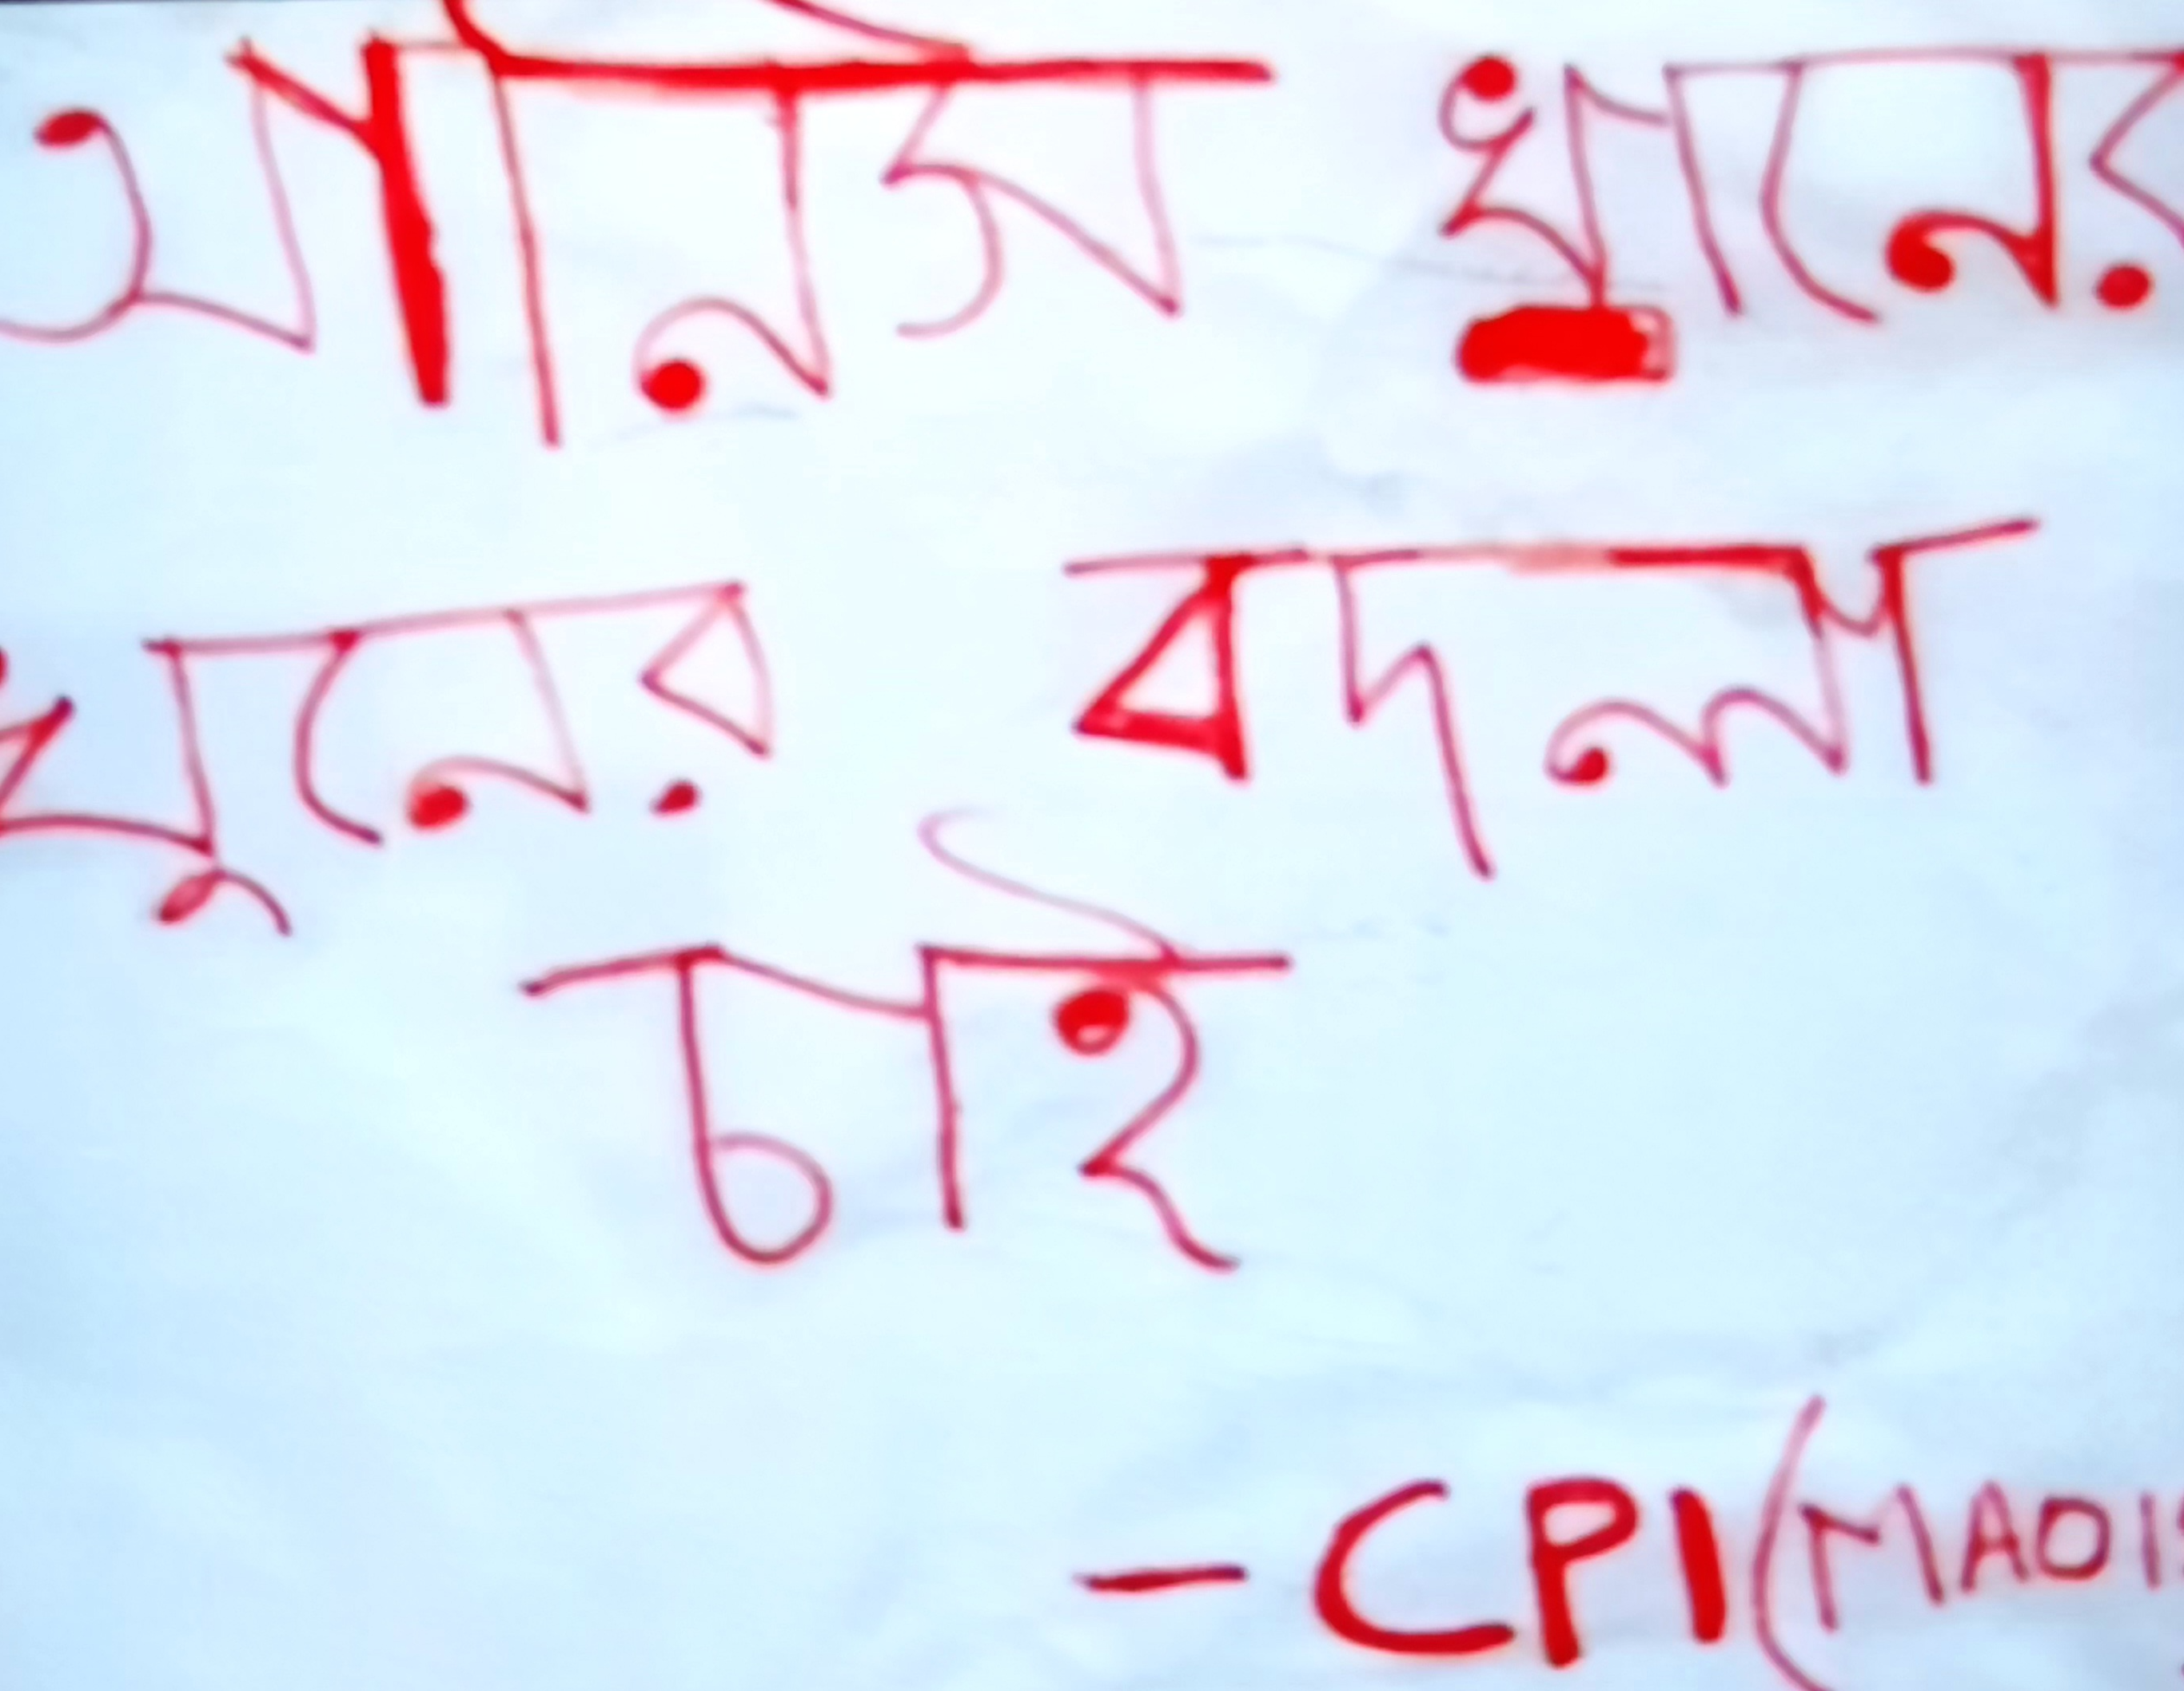 আনিস খানের
খুনের বদলা
চাই
- CPI (MAOIS